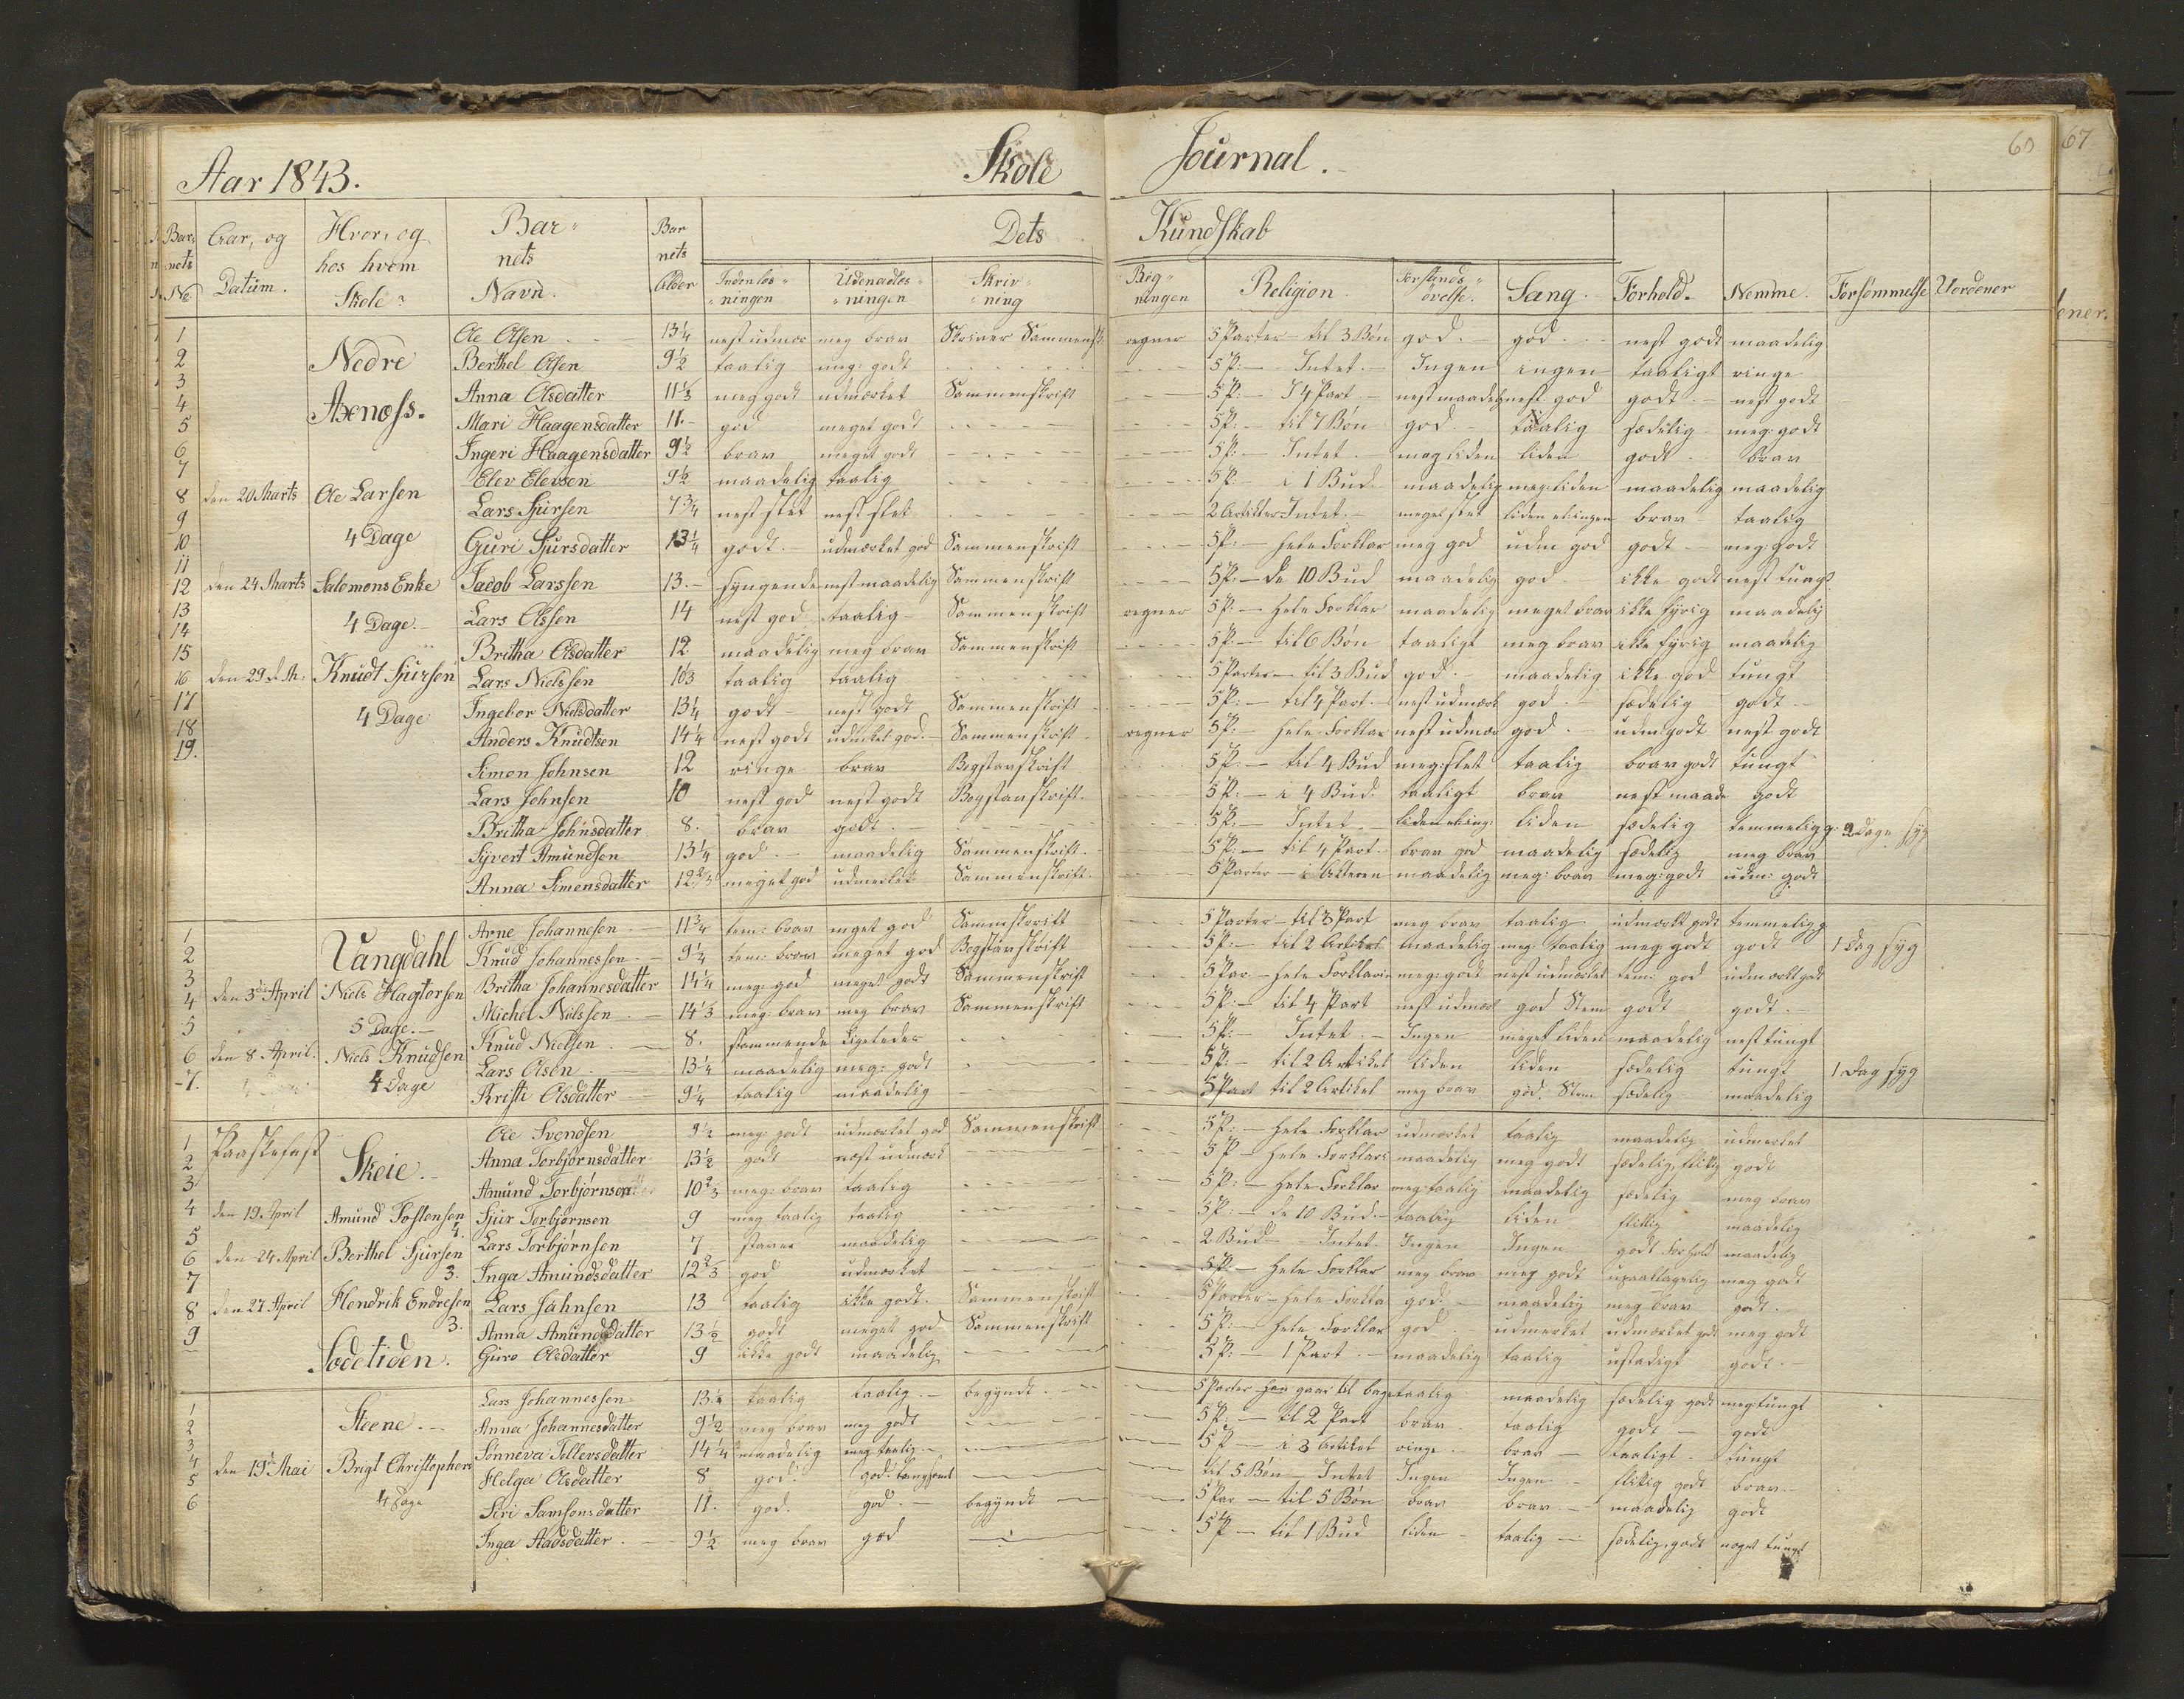 Aar 1843. Skole Journal. 60 67
Barnets No Aar, og Datum. Hvor, og hos hvem Skole? Barnets Navn. Barnets Alder Dets Kundskab
Indenlæsningen Udenadlæsningen Skrivning Regningen Religion. Forstandsövelse. Sang. Forhold. Nemme. Forsömmelse Uordener
1 Nedre Axenæss. Ole Olsen 13¼ nest udmær meg brav Skriver Sammenskr. regner 5 Parter til 3 Bön god. god. nest godt maadelig
2 Berthel Olsen 9½ taalig meg: godt 5 P: Intet. Ingen ingen taaligt ringe
3 Anna Olsdatter 11⅓ meg godt udmærket Sammenskrift 5 P: I 4 Part nest maadelig nest god godt nest godt
4 Mari Haagensdatter 11. god meget godt 5 P: til 7 Bön god. taalig sædelig meg: godt
5 Ingeri Haagensdatter 9½ brav meget godt 5 P: Intet. meg liden liden godt brav
6 Elev Elevsen 9½ maadelig taalig 5 P: i 1 Bud maadelig meg: liden maadelig maadelig
7 den 20 Marts Ole Larsen Lars Sjursen 7¾ nest slet nest slet 2 Artikler Intet. meget slet liden el: ingen brav taalig
8 4 Dage Guri Sjursdatter 13¼ godt. udmærket god Sammenskrift 5 P: hele Forklar meg god udm god godt meg: godt
9 den 24 Marts Salomons Enke Jacob Larssen 13. syngende nest maadelig Sammenskrift 5 P: de 10 Bud maadelig god ikke godt nest tungt
10 4 Dage. Lars Olssen 14 nest god taalig Sammenskrift regner 5 P: hele Forklar maadelig meget brav ikke fyrig maadelig
11 Britha Olsdatter 12 maadelig meg brav Sammenskrift 5 P: til 6 Bön taaligt meg brav ikke fyrig maadelig
12 den 29 d. M: Knudt Sjursen Lars Nielssen 10⅓ taalig taalig 5 Parter til 3 Bud god maadelig ikke god tungt
13 4 Dage Ingebor Nielsdatter 13¼ godt nest godt Sammenskrift 5 P: til 4 Part. nest udmærk god sædelig godt
14 Anders Knudtsen 14¼ nest godt udmerket god. Sammenskrift regner 5 P: hele Forklar nest udmær god. udm godt nest godt
15 Simon Johnsen 12 ringe brav Bogstavskrift 5 P. til 4 Bud meg: slet taalig brav godt tungt
16 Lars Johnsen 10 nest god nest godt Bogstavskrift. 5 P: i 4 Bud. taaligt brav nest maade godt
17 Britha Johnsdatter 8. brav godt 5 P: Intet liden el: ing: liden sædelig temmelig g. 2 Dage syg
18 Syvert Amundsen 13¼ god. maadelig Sammenskrift. 5 P: til 4 Part. brav god maadelig sædelig meg brav
19. Anna Simonsdatter 12⅔ meget god udmerket Sammenskrift. 5 Parter i Alteren maadelig meg: brav meg: godt udm: godt
1 Vangdahl Arne Johannesen 11¾ tem: brav meget god Sammskrift 5 Parter til 3 Part meg brav taalig udmærkt godt temmelig g
2 Knud Johannessen 9¼ tem: brav meget god Bogstavskrift 5 P: til 2 Artikel maadelig meg: taalig meg: godt godt 1 Dag syg
3 den 3die April Niels Hagtorsen Britha Johannesdatter 14¼ meg: god meget godt Sammenskrift 5 Par hele Forklarin meg: godt nest udmerket tem: god udmærkt godt
4 5 Dage. Michel Nielssen 14⅓ meg: brav meg brav Sammenskrift 5 P: til 4 Part nest udmær god Stem godt godt.
5 Knud Nielsen 8. stammende ligeledes 5 P: Intet Ingen meget liden maadelig nest tungt
6 den 8 April. Niels Knudsen Lars Olsen 13¼ maadelig meg: godt 5 P: til 2 Artikel liden liden sædelig tungt 1 Dag syg
7. 4 Dage Kristi Olsdatter 9¼ taalig maadelig 5 Part til 2 Artikel meg brav god. Stem sædelig maadelig
1 Paaskefest Skeie. Ole Svendsen 9½ meg: godt udmærket god Sammenskrift 5 P: hele Forklar udmærket taalig maadelig udmerket
2 Anna Torbjörnsdatter 13½ godt næst udmærk 5 P hele Forklari maadelig meg godt sædelig, flittig godt
3 Amund Torbjörnson 10⅔ meg: brav taalig 5 P: hele Forklar meg: taalig maadelig sædelig meg brav
4 den 19 April Amund Tostensen 4. Sjur Torbjörnsen 9 meg taalig taalig 5 P: de 10 Bud. taalig liden flittig maadelig
5 Lars Torbjörnsen 7 staver maadelig 2 Bud Intet. Ingen Ingen godt Forhold maadelig
6 den 24 April Berthel Sjursen 3. Inga Amundsdatter 12⅔ god udmærket 5 P. hele Forklar meg brav meg godt upaaklagelig meg godt
7 den 27 April Hendrik Endresen 3. Lars Jahnsen 13 taalig ikke godt. Sammenskrift 5 Parter hele Forkla god. maadelig meg brav godt.
8 Anna Amundsdatter 13½ godt meget god Sammenskrift 5 P: hele Forklar god udmerket udmærket godt meg godt
9 Sædetiden. Guro Olsdatter 9 ikke godt maadelig 5 P: 1 Part. maadelig taalig ustadigt godt.
1 Steene. Lars Johannessen 13¼ taalig taalig. begyndt. 5 Parter han gaar til bage taalig maadelig sædelig godt meg tungt
2 Anna Johannesdatter 9½ meg brav meg godt 5 P: til 2 Part brav taalig godt godt
3 Sönneva Tollevsdatter 14¼ maadelig meg taalig 5 P i 3 Artikel ringe brav taaligt tungt
4 den 19de Mai Brigt Christophers Helga Olsdatter 8 god. god langsomt til 5 Bön Intet Ingen Ingen flittig godt brav.
5 4 Dage Siri Samsonsdatter 11. god. god. begyndt 5 Par til 5 Bön brav brav. maadelig godt
6 Inga Aadsdatter 9½ meg brav god 5 P til 1 Bud liden taalig sædelig, godt noget tungt